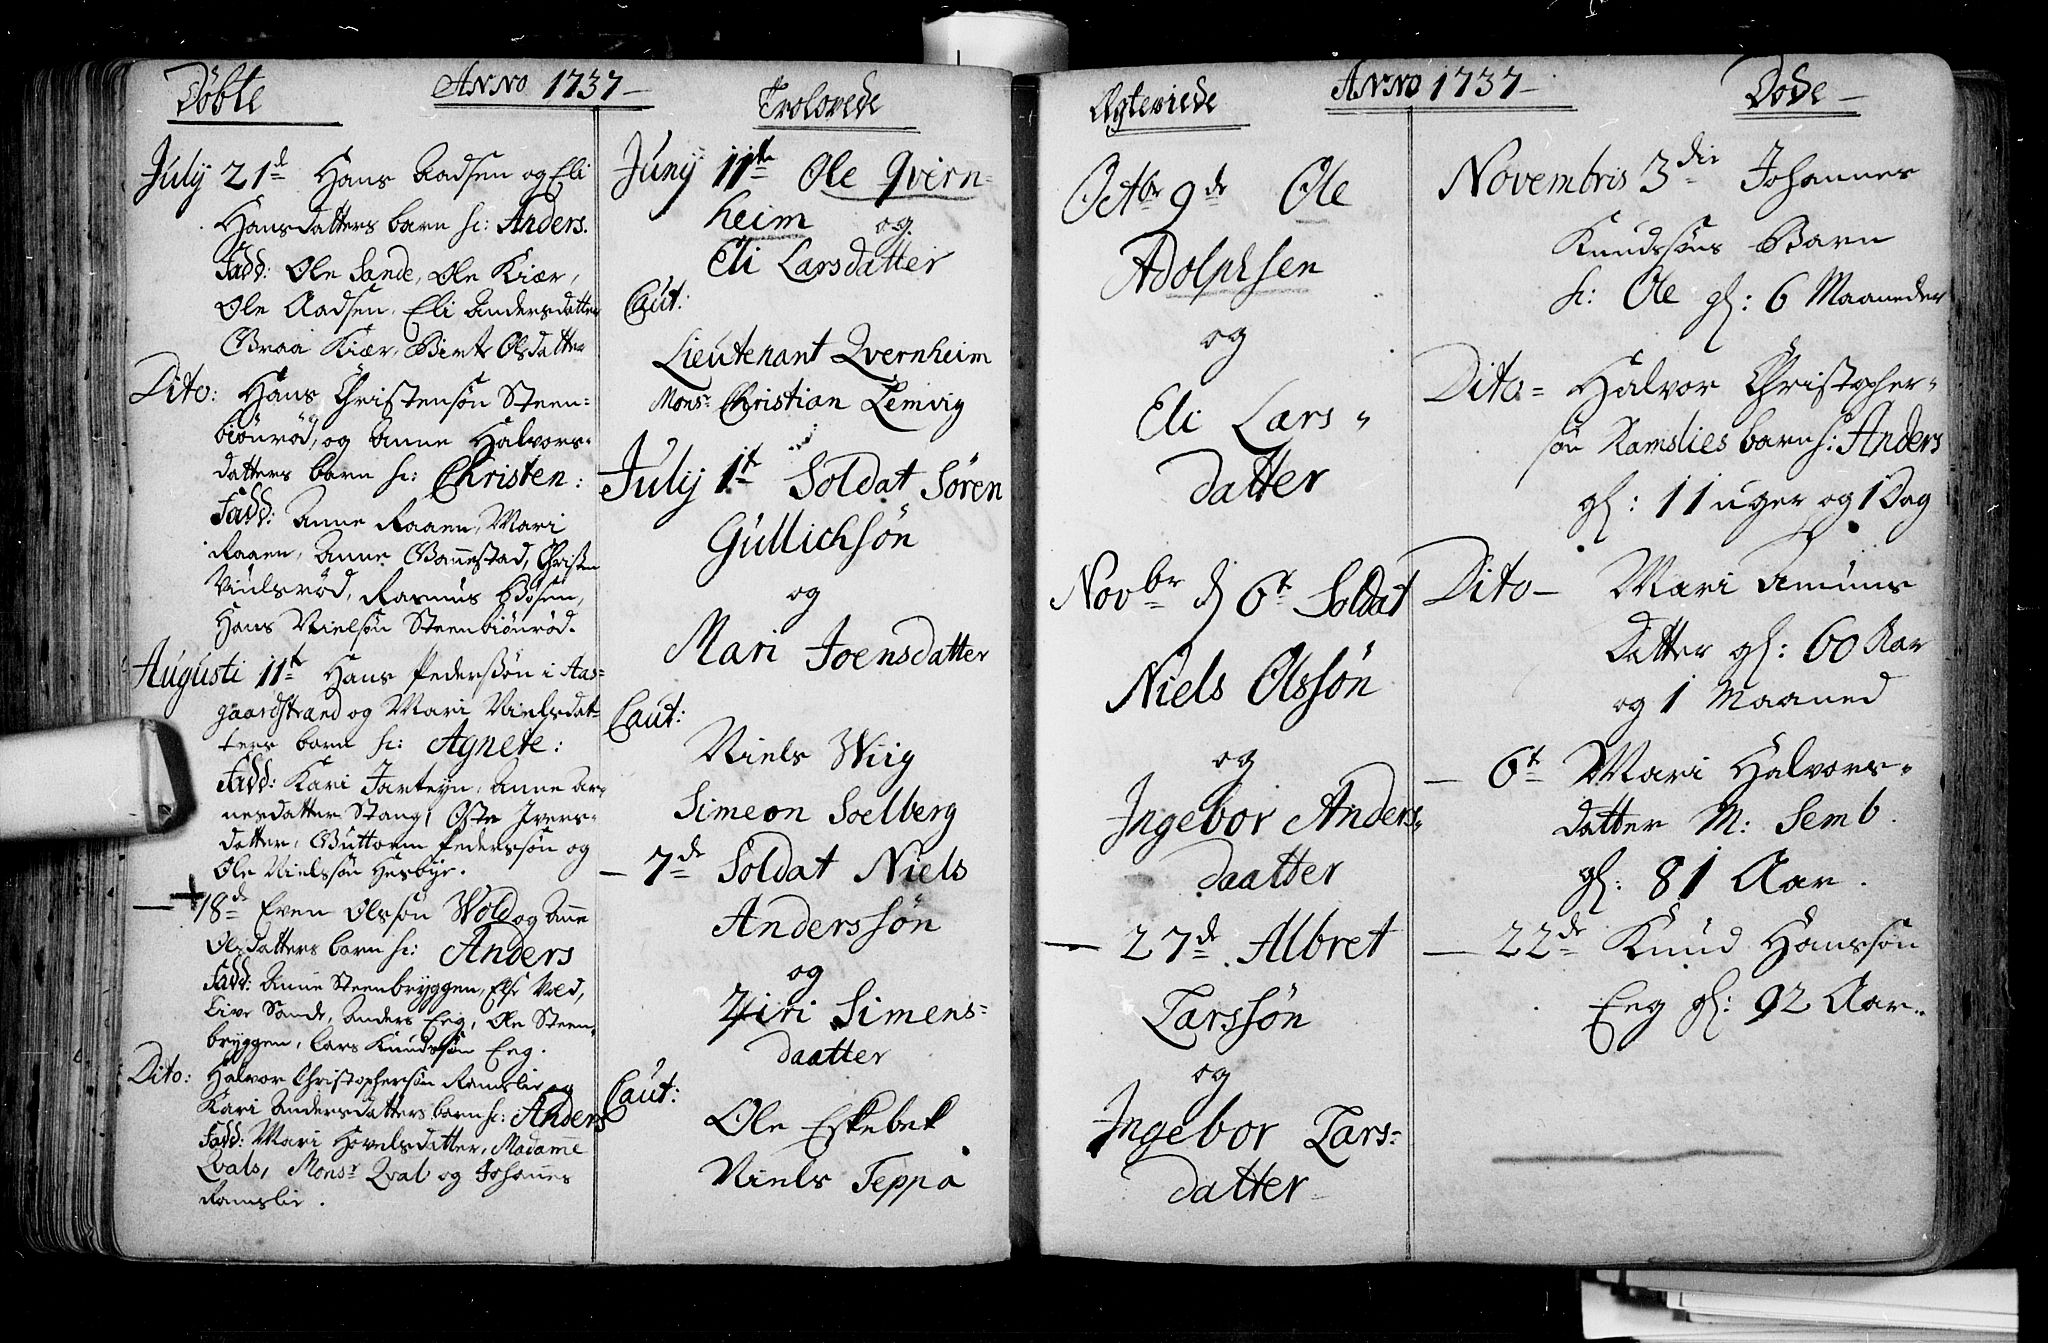 Döbte
Anno 1737
July 21de Hans Aadsen og Eli
Hansdatters barn h: Anders.
Fadd: Ole Sande, Ole Kiær,
Ole Aadsen, Eli Andersdatter
Kiær, Birte Olsdatter
Dito: Hans Christensön Steen=
biönröd, og Anne Halvors=
datters barn h: Christen:
Fadd: Anne Raaen, Mari
Raaen, Anne Christen
Rasmus
Hans Nielsön Steenbiönröd.
Augusti 11te Hans Pederssön i Aas=
gaardstrand og Mari Nielsdat=
ters barn h: Agnete:
Fadd: Kari Jarteyn, Anne Ar=
nesdatter Stang, Ivers=
datter, Guttorm Pederssön og
Ole Nielssön Hesbye.
— 18de Even Olssön Wold og Anne
Olsdatters barn h: Anders
Fadd: Anne Steenbryggen, Else
Live Sande, Anders Eeg, Ole Steen=
bryggen, Lars Knudssön Eeg.
Dito: Halvor Christophersön Ramslie og
Kari Andersdatters barn h: Anders
Fadd: Mari Hovelsdatter, Madame
Qvals, Monsr Qval og Johannes
Ramslie.
Trolovede
Juny 11te Ole Qvern=
heim og
Eli Larsdatter
Caut:
Lieutenant Qvernheim
Monsr Christian Lemvig
July 1te Soldat Sören
Gullichsön
og
Mari Joensdatter
Caut:
Niels Wiig
Simeon Soelberg
— 7de Soldat Niels
Anderssön
og
Siri Simens=
daatter
Caut:
Ole Eskebek
Niels Teppa
Ægteviede
Anno 1737
Octbr 9de Ole
Adolphsen
og
Eli Lars=
datter
Novbr d 6te Soldat
Niels Olssön
og
Ingebor Anders=
daatter
— 27de Albret
Larssön
og
Ingebor Lars=
datter
Döde
Novembris 3die Johannes
Knudssöns Barn
h: Ole gl: 6 Maaneder
Dito= Halvor Christopher=
sön Ramslies barn h: Anders
gl: 11 uger og 1 Dag
Dito— Mari Amuns
Datter gl: 60 Aar
og 1 Maaned
— 6te Mari Halvors=
datter M: Semb.
gl: 81 Aar.
— 22de Knud Hanssön
Eeg gl: 92 Aar.